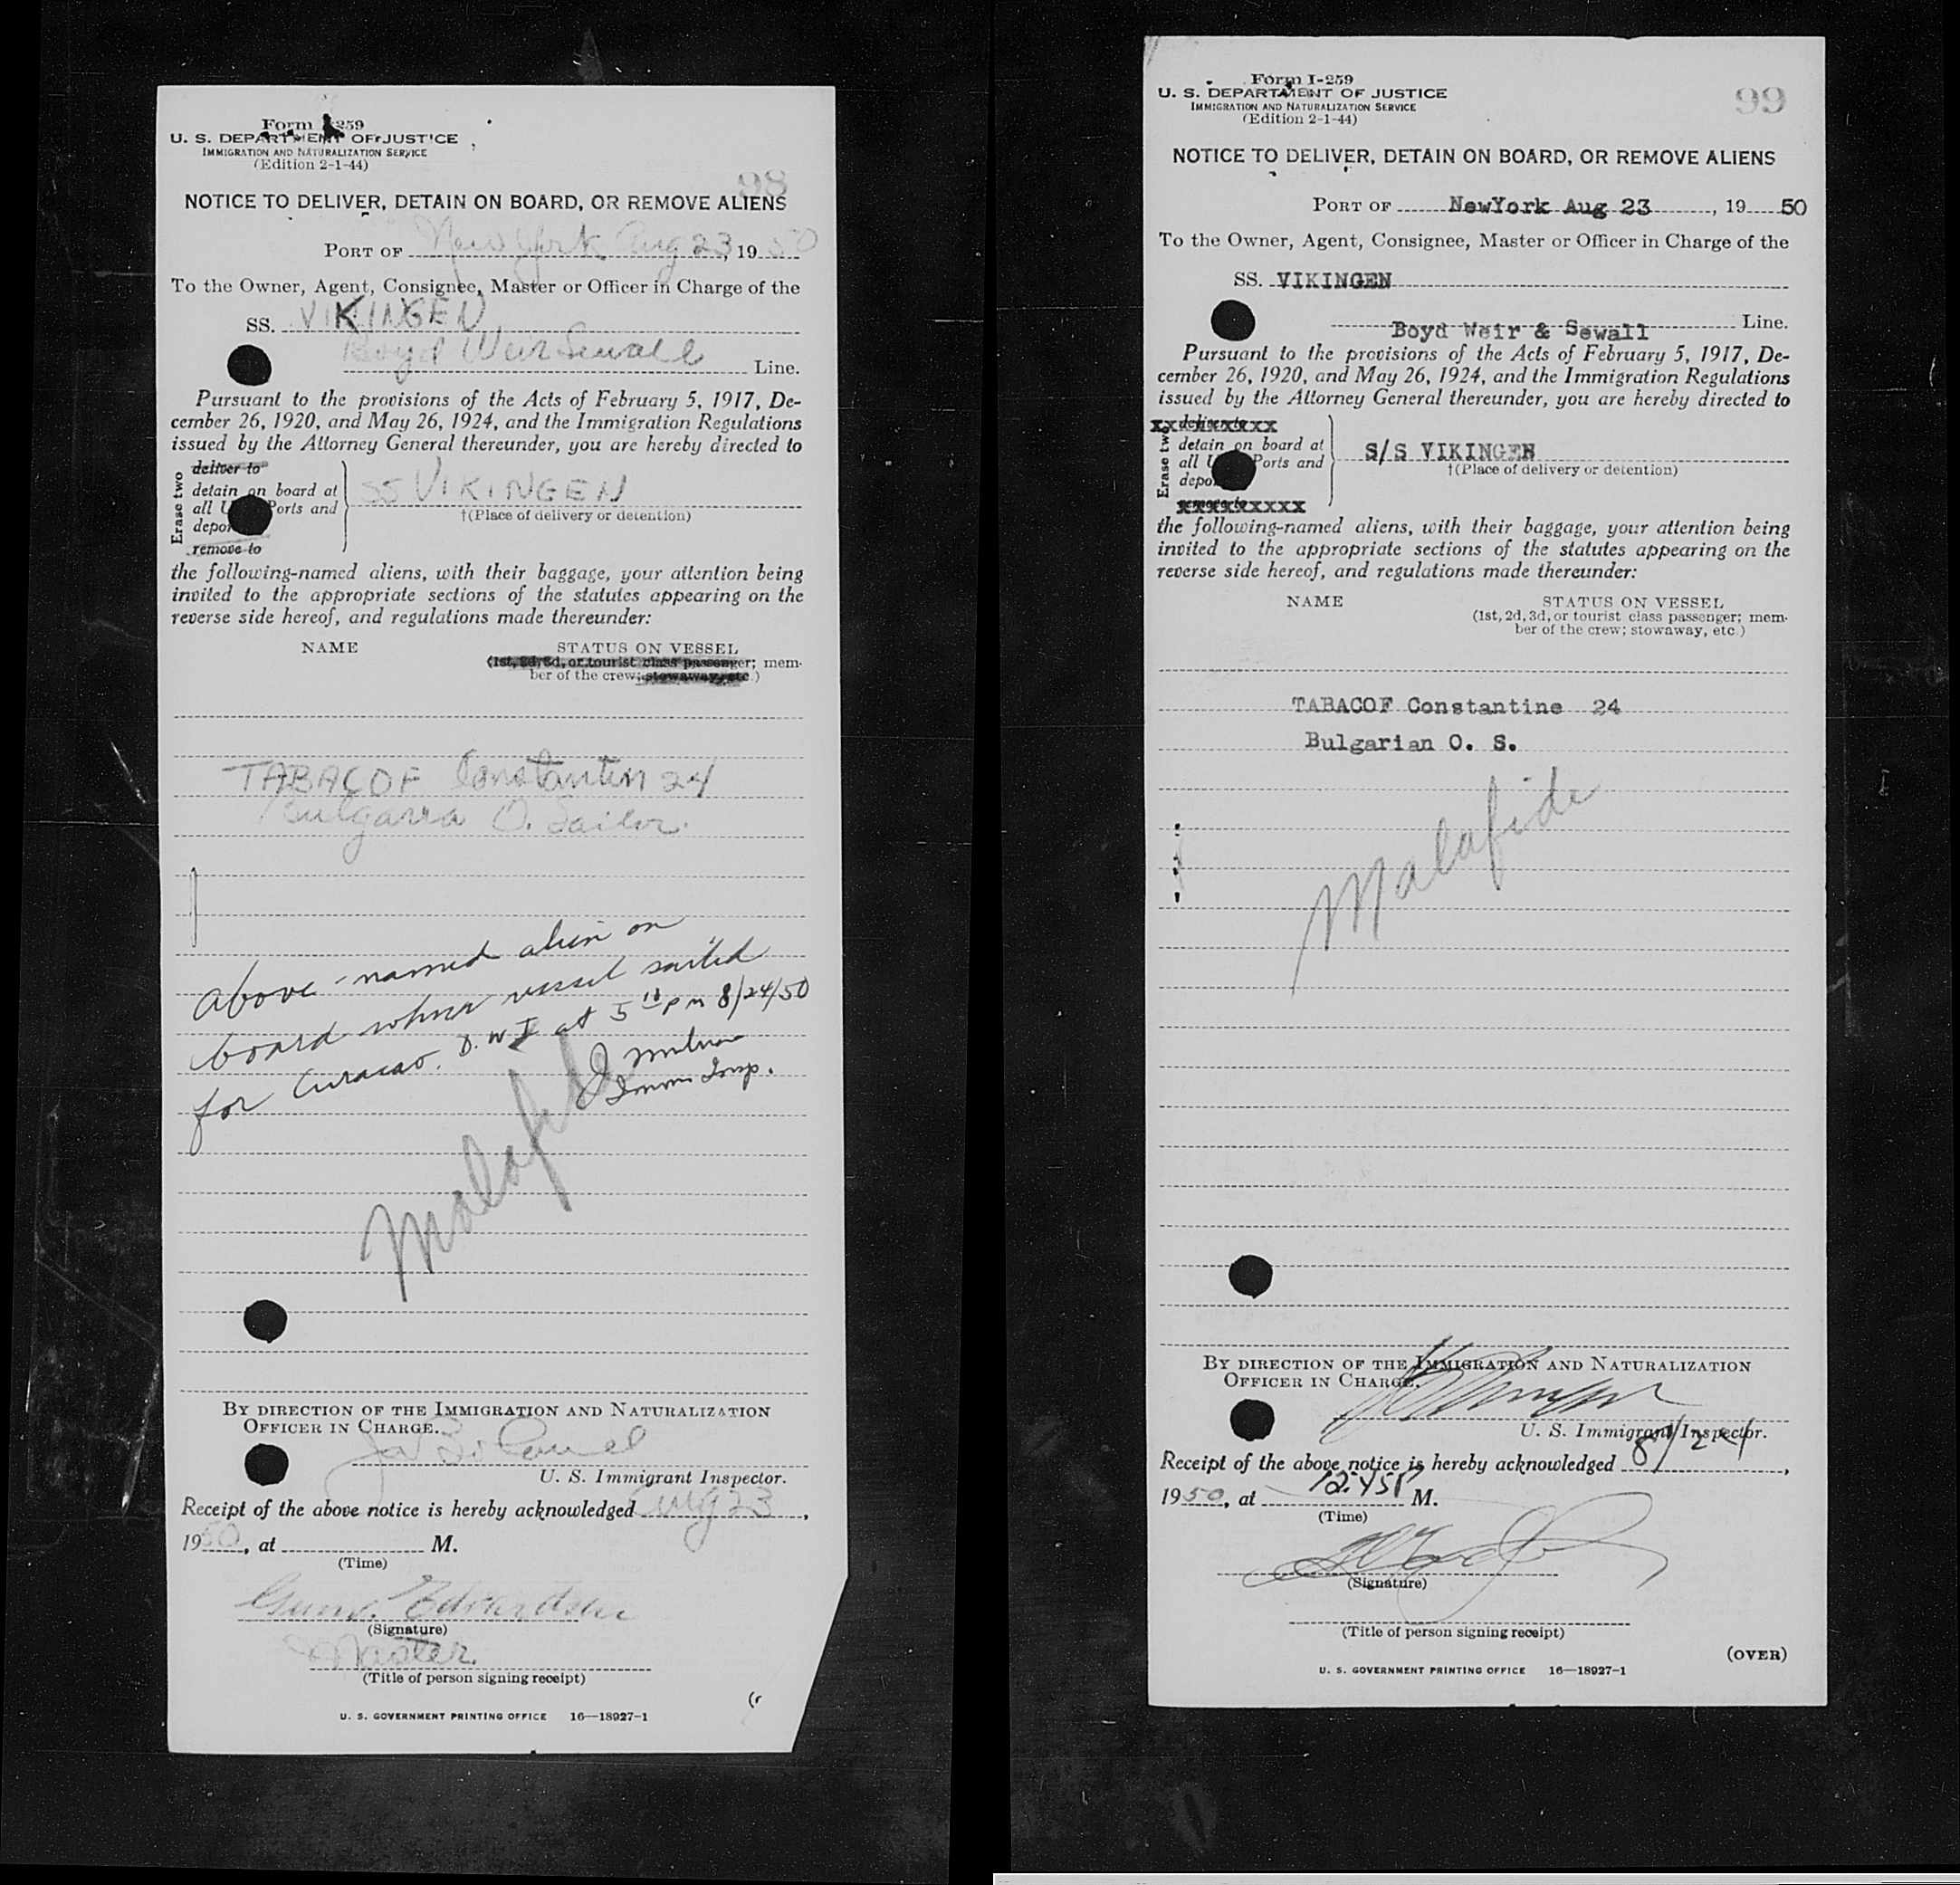 Form I-259
U. S. DEPARTMENT OF JUSTICE
IMMIGRATION AND NATURALIZATION SERVICE
(Edition 2-1-44)
98
NOTICE TO DELIVER, DETAIN ON BOARD, OR REMOVE ALIENS
PORT OF New York Aug 23, 19 50
To the Owner, Agent, Consignee, Master or Officer in Charge of the
SS. VIKINGEN
Boyd Weir Sewall Line.
Pursuant to the provisions of the Acts of February 5, 1917, De-
cember 26, 1920, and May 26, 1924, and the Immigration Regulations
issued by the Attorney General thereunder, you are hereby directed to
Erase two
deliver to
detain on board at
all U Ports and
depor
remove to
SS VIKINGEN
†(Place of delivery or detention)
the following-named aliens, with their baggage, your attention being
invited to the appropriate sections of the statutes appearing on the
reverse side hereof, and regulations made thereunder:
NAME STATUS ON VESSEL
(1st, 2d, 3d, or tourist class passenger; mem-
ber of the crew; stowaway, etc.)
TABACOF Constantin 24
Bulgaria O. Sailor.
Above-named alien on
board when vessel sailed
for Curacao. D.W.I at 5 10 pm 8/24/50
Imm Insp.
Malafide
BY DIRECTION OF THE IMMIGRATION AND NATURALIZATION
OFFICER IN CHARGE.
U. S. Immigrant Inspector.
Receipt of the above notice is hereby acknowledged Aug 23,
1950, at M.
(Time)
Gunv. Edvardsen
(Signature)
Master.
(Title of person signing receipt)
U. S. GOVERNMENT PRINTING OFFICE 16—18927-1
Form I-259
U. S. DEPARTMENT OF JUSTICE
IMMIGRATION AND NATURALIZATION SERVICE
(Edition 2-1-44)
99
NOTICE TO DELIVER, DETAIN ON BOARD, OR REMOVE ALIENS
PORT OF NewYork Aug 23, 19 50
To the Owner, Agent, Consignee, Master or Officer in Charge of the
SS. VIKINGEN
Boyd Weir & Sewall Line.
Pursuant to the provisions of the Acts of February 5, 1917, De-
cember 26, 1920, and May 26, 1924, and the Immigration Regulations
issued by the Attorney General thereunder, you are hereby directed to
Erase two
deliver to
detain on board at
all U Ports and
depo
remove to
S/S VIKINGEN
†(Place of delivery or detention)
the following-named aliens, with their baggage, your attention being
invited to the appropriate sections of the statutes appearing on the
reverse side hereof, and regulations made thereunder:
NAME STATUS ON VESSEL
(1st, 2d, 3d, or tourist class passenger; mem-
ber of the crew; stowaway, etc.)
TABACOF Constantine 24
Bulgarian O. S.
Malafide
BY DIRECTION OF THE IMMIGRATION AND NATURALIZATION
OFFICER IN CHARGE.
U. S. Immigrant Inspector.
Receipt of the above notice is hereby acknowledged 8/24,
1950, at 12:45P M.
(Time)
(Signature)
(Title of person signing receipt)
(OVER)
U. S. GOVERNMENT PRINTING OFFICE 16—18927-1